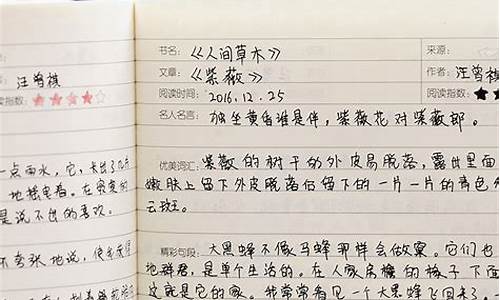 汪曾祺
阅读指数：★★★★☆
一点雨水，它，卡出了几片
地摇曳着。在寂寞的
是说不出的喜欢。
不夸张地说，使我觉得
书名：《人间草木》
来源：
文章：《紫薇》
作者：汪曾祺
阅读时间：2016.12.25
阅读指数：★★
名人名言：独坐黄昏谁是伴，紫薇花对紫薇郎。
优美词汇：紫薇的树干的外皮易脱落，露出里面
嫩肤上留下外皮脱落后留下的一片一片的青色
云斑。
精彩句段：大黑蜂不像马蜂那样会做窠。它们也
地群居，是单个生活的。在人家房檐的椽子下面
这就是它的家。我常常看见一个大黑蜂飞回来了